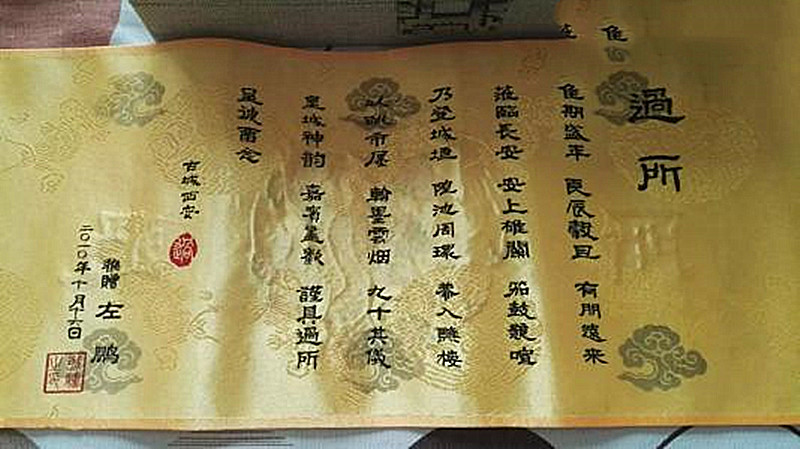 過所
佳期盛年 良辰穀旦 有朋遠來
蒞臨長安 安上雄關 笳鼓競喧
乃登城垣 隍池周環 入譙楼
以眺市廛 翰墨雲烟 九十其儀
皇城神韵 嘉賓盡歡 謹具過所
念
古城西安
雅贈 左鹏
二〇〇年十月十六日